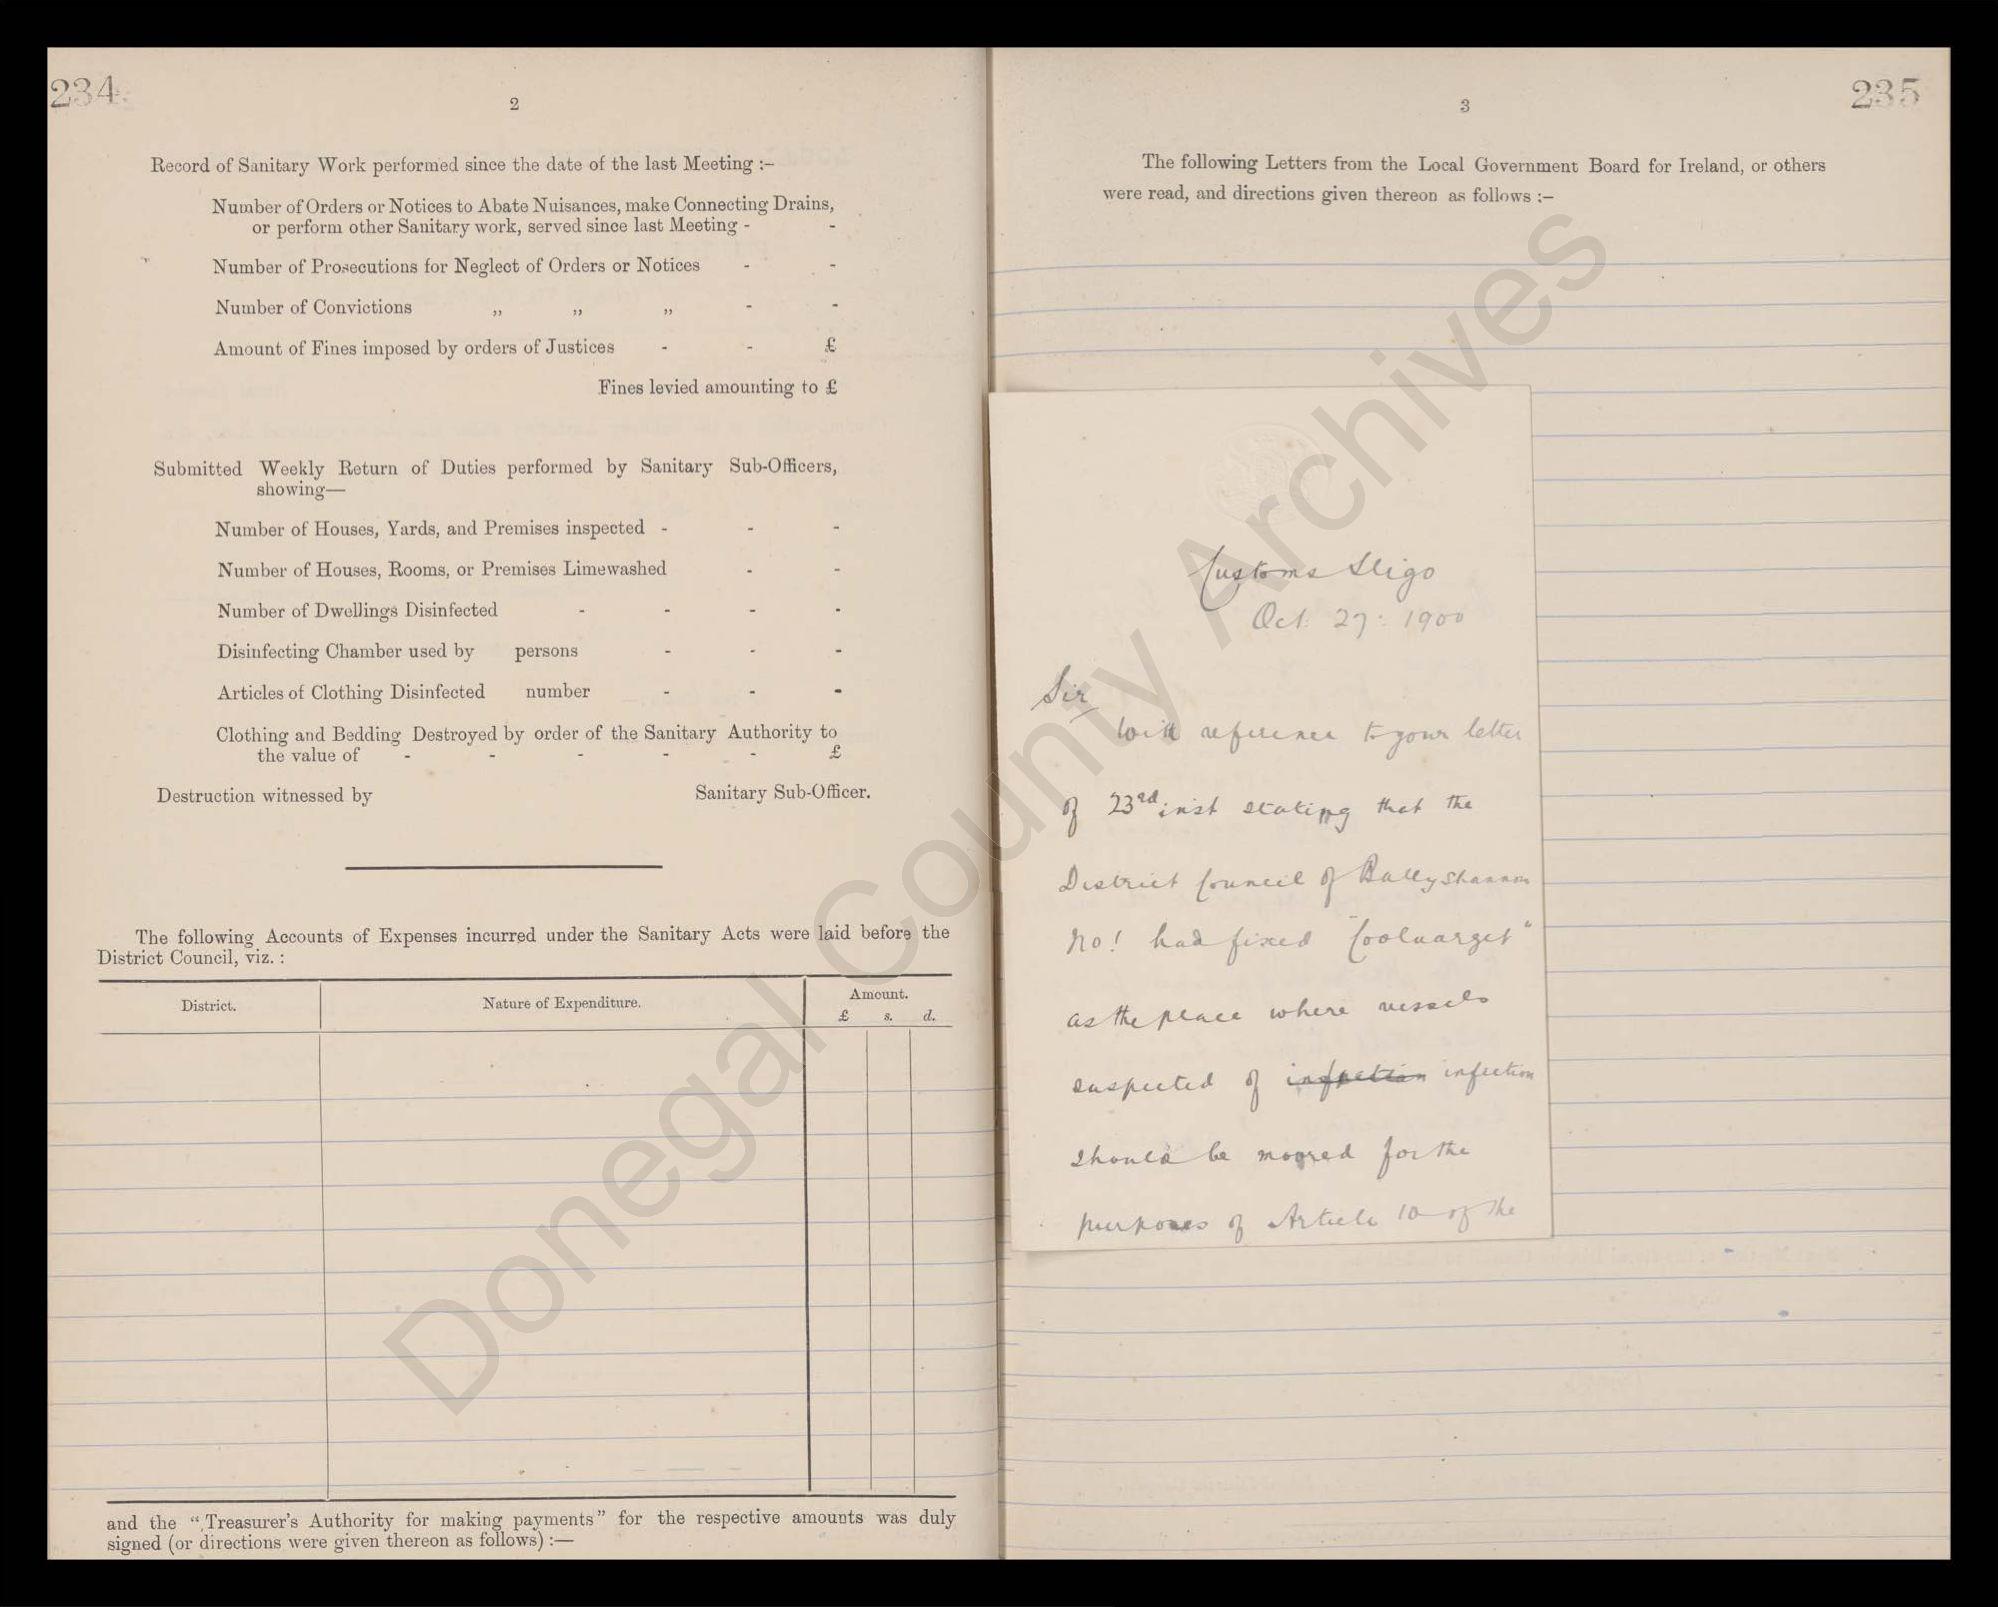 234
2
Record of Sanitary Work performed since the date of the last Meeting :-
Number of Orders or Notices to Abate Nuisances, make Connecting Drains,
or perform other Sanitary work, served since last Meeting - -
Number of Prosecutions for Neglect of Orders or Notices - -
Number of Convictions „ „ „ - -
Amount of Fines imposed by orders of Justices - - £
Fines levied amounting to £
Submitted Weekly Return of Duties performed by Sanitary Sub-Officers,
showing—
Number of Houses, Yards, and Premises inspected - - -
Number of Houses, Rooms, or Premises Limewashed - -
Number of Dwellings Disinfected - - - -
Disinfecting Chamber used by persons - - -
Articles of Clothing Disinfected number - - -
Clothing and Bedding Destroyed by order of the Sanitary Authority to
the value of - - - - - £
Destruction witnessed by Sanitary Sub-Officer.
The following Accounts of Expenses incurred under the Sanitary Acts were laid before the
District Council, viz. :
District. Nature of Expenditure. Amount.
£ s. d.
and the "Treasurer's Authority for making payments" for the respective amounts was duly
signed (or directions were given thereon as follows) :—
235
3
The following Letters from the Local Government Board for Ireland, or others
were read, and directions given thereon as follows :-
Customs Sligo
Oct. 27: 1900
Sir
With reference to your letter
of 23rd inst stating that the
District Council of Ballyshannon
No 1 had fixed "Coolnargit"
as the place where vessels
suspected of infection infection
should be moored for the
purposes of Article 10 of the
Donegal County Archives